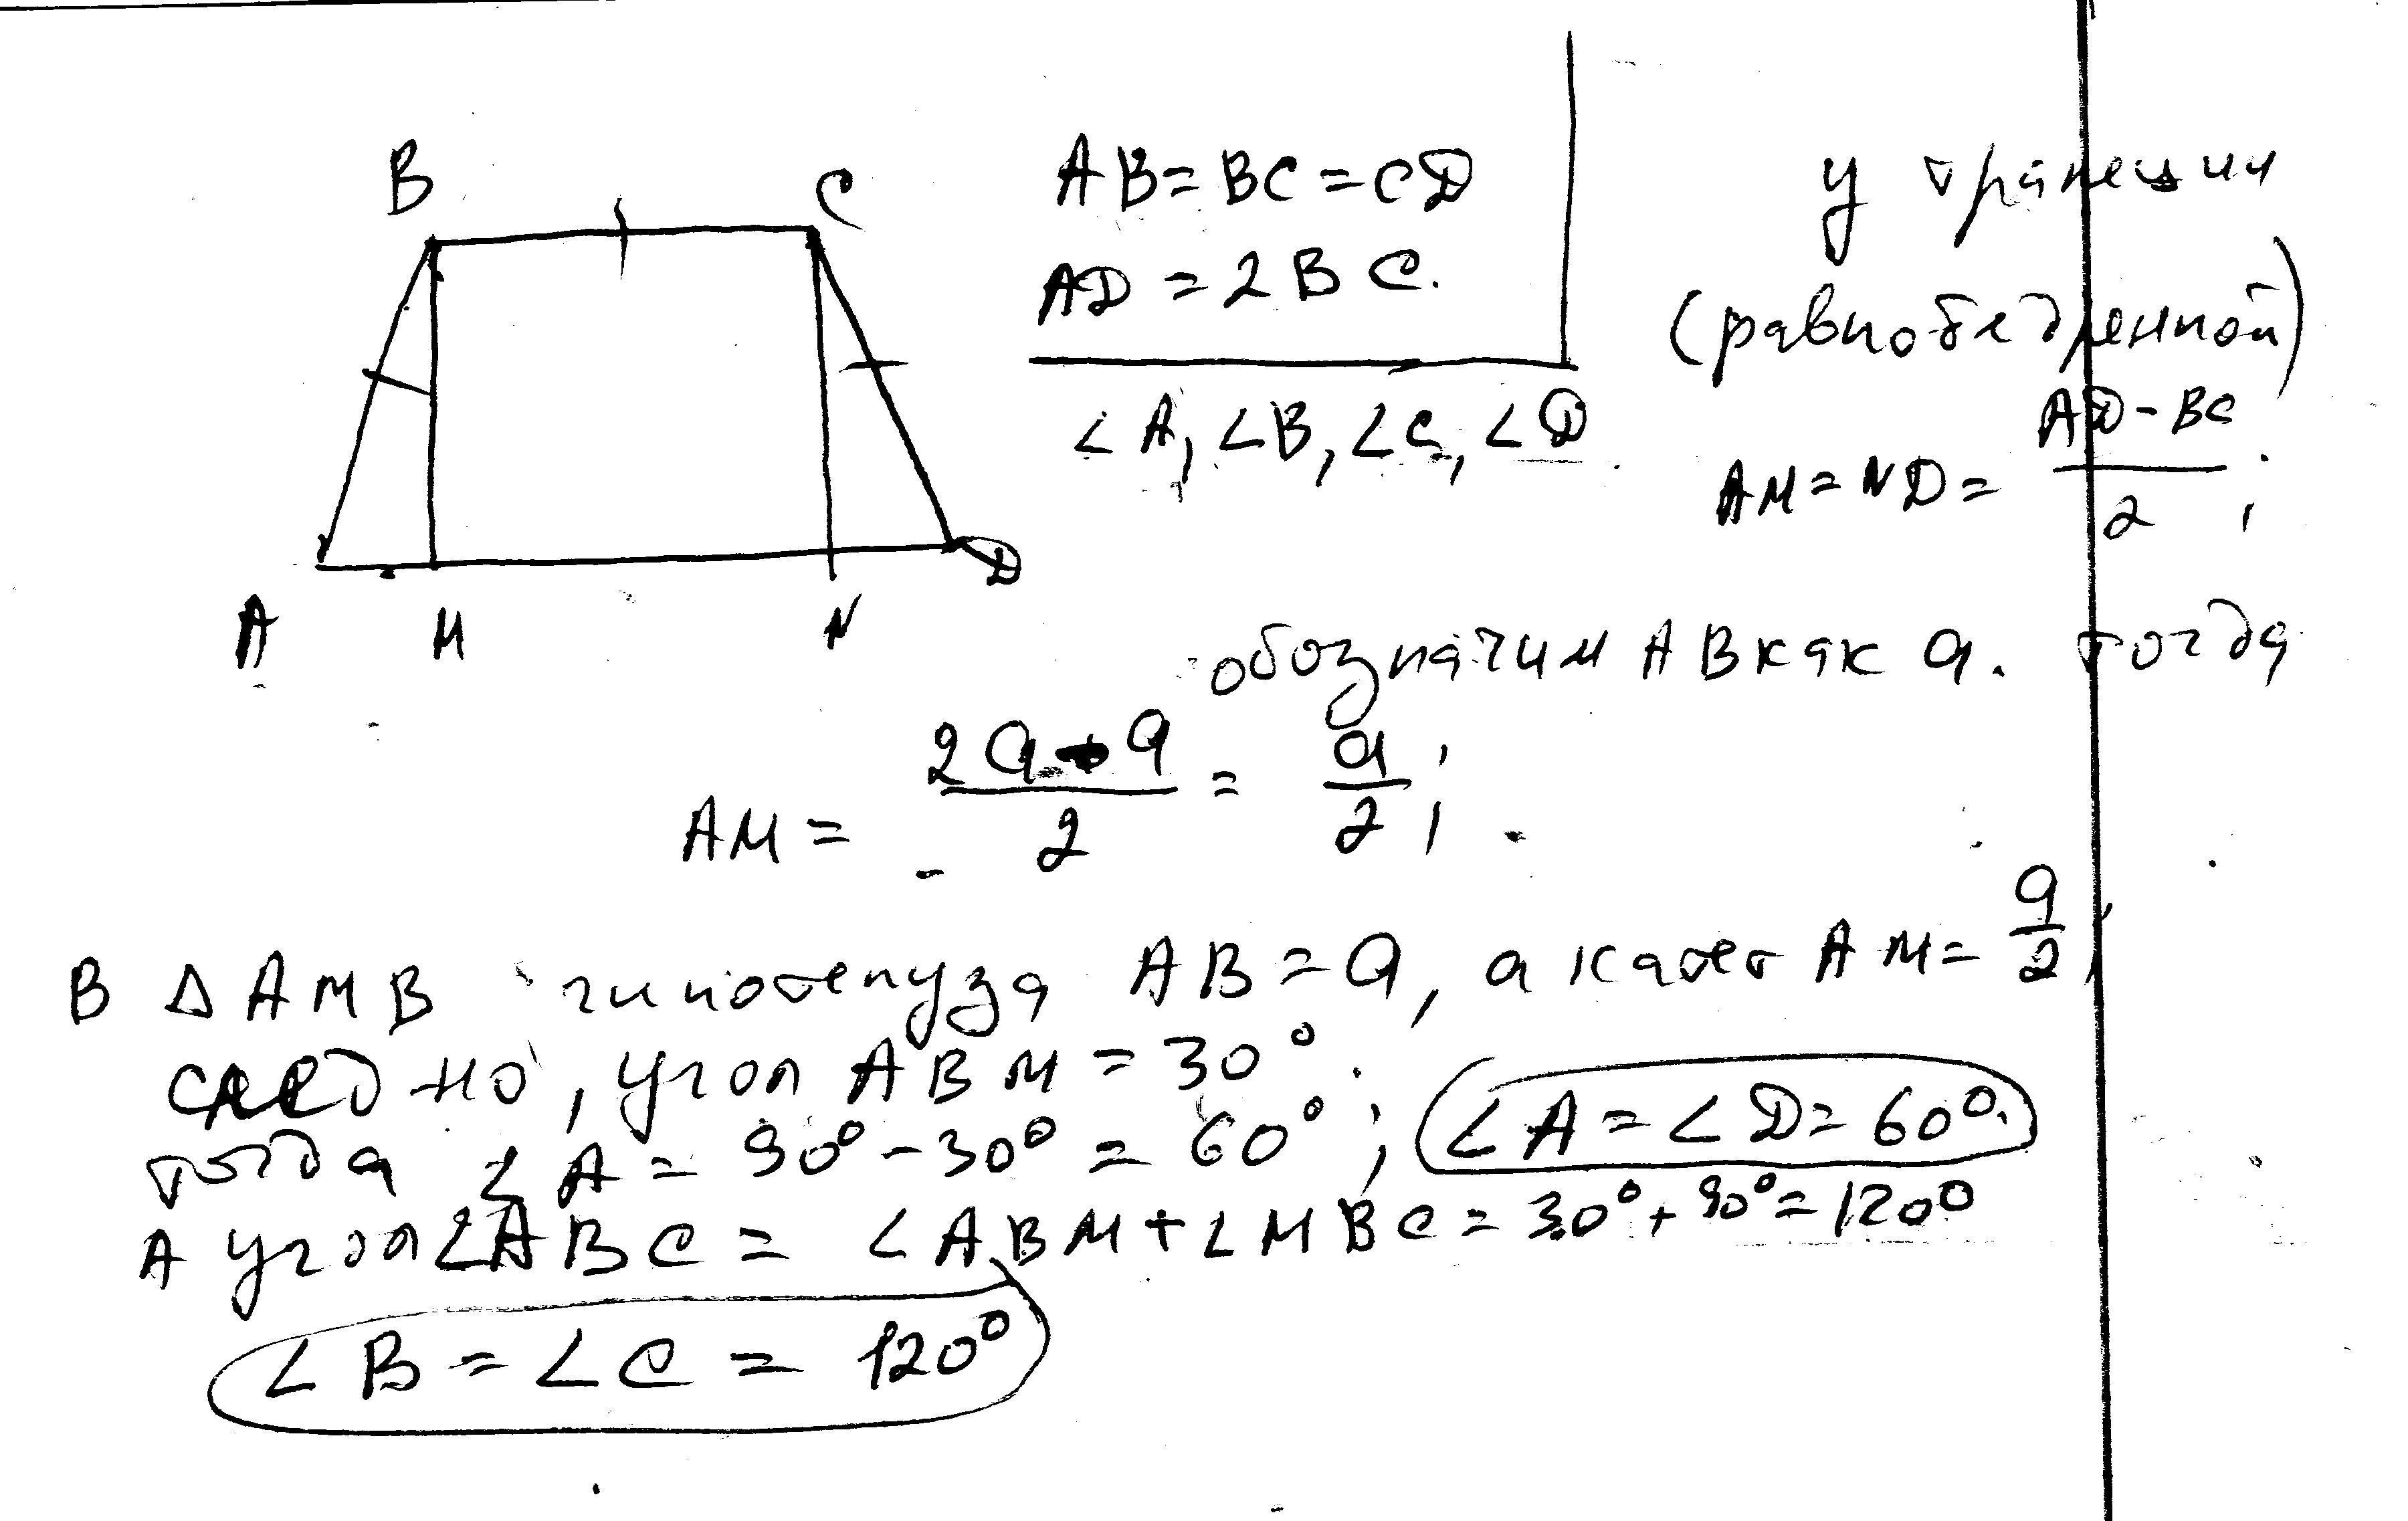 B C
A M N D
AB = BC = CD
AD = 2BC.
∠A, ∠B, ∠C, ∠D
У трапеции
(равнобедренной)
AM = ND = (AD - BC)/2;
обозначим AB как a. тогда
AM = (2a - a)/2 = a/2;
В △AMB гипотенуза AB = a, а катет AM = a/2;
след-но, угол ABM = 30°.
тогда ∠A = 90° - 30° = 60°; ∠A = ∠D = 60°.
А угол ∠ABC = ∠ABM + ∠MBC = 30° + 90° = 120°
∠B = ∠C = 120°